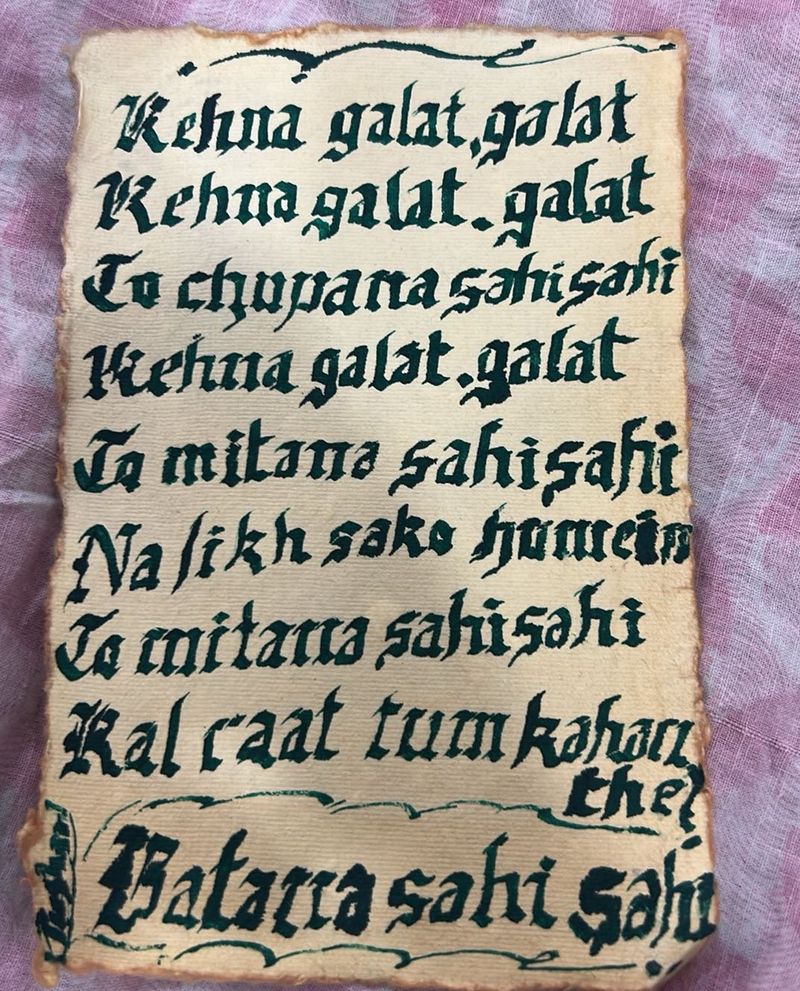 Kehna galat, galat
Kehna galat. galat
To chupana sahi sahi
Kehna galat. galat
To mitana sahi sahi
Na likh sako humein
To mitana sahi sahi
Kal raat tum kahan
the?
Batana sahi sahi